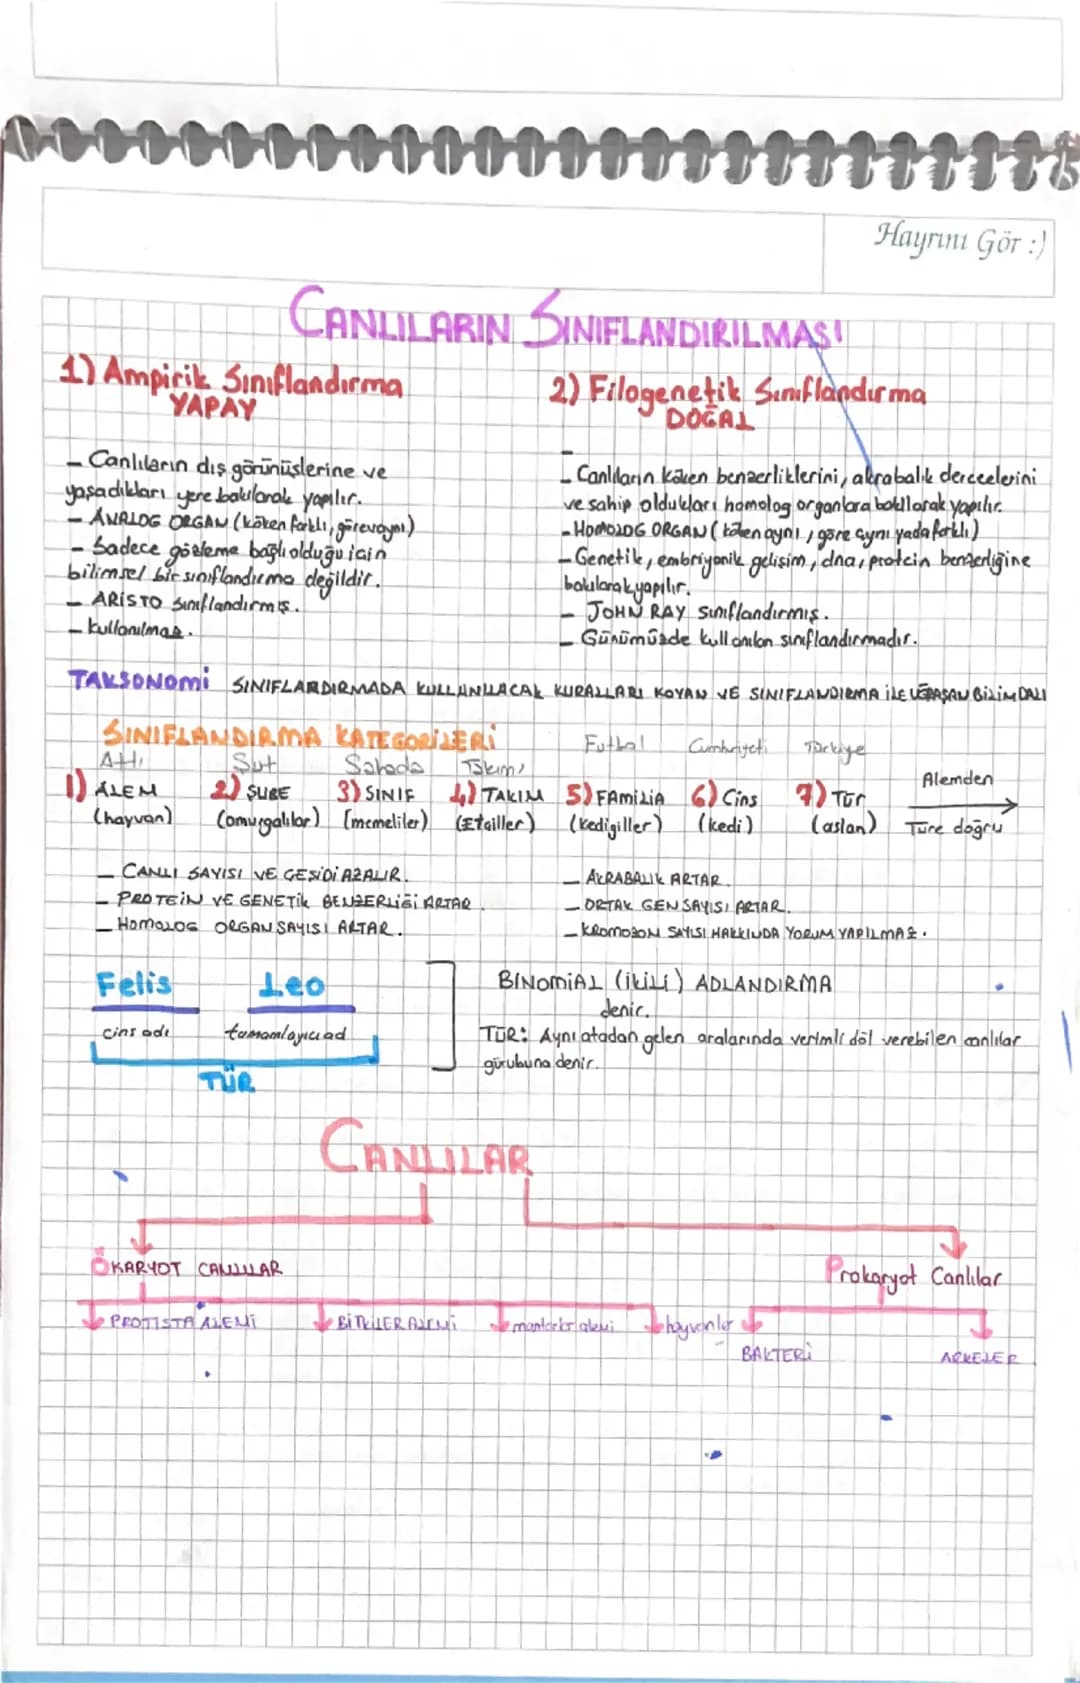 Hayrını Gör :)
CANLILARIN SINIFLANDIRILMASI
1) Ampirik Sınıflandırma
YAPAY
- Canlıların dış görünüşlerine ve
yaşadıkları yere bakılarak yapılır.
- ANALOG ORGAN (köken farklı, görev aynı)
- Sadece gözleme bağlı olduğu için
bilimsel bir sınıflandırma değildir.
- ARİSTO sınıflandırmış.
- Kullanılmaz.
2) Filogenetik Sınıflandırma
DOĞAL
- Canlıların köken benzerliklerini, akrabalık derecelerini
ve sahip oldukları homolog organlara bakılarak yapılır.
- HOMOLOG ORGAN (köken aynı, göre aynı yada farklı)
- Genetik, embriyonik gelişim, dna, protein benzerliğine
bakılarak yapılır.
- JOHN RAY sınıflandırmış.
- Günümüzde kullanılan sınıflandırmadır.
TAKSONOMİ SINIFLARDIRMADA KULLANILACAK KURALLARI KOYAN VE SINIFLANDIRMA İLE UĞRAŞAN BİLİM DALI
SINIFLANDIRMA KATEGORİLERİ
Atlı Şut Sahada Takımı Futbol Cumhuriyeti Türkiye
1) ALEM 2) ŞUBE 3) SINIF 4) TAKIM 5) FAMİLİA 6) Cins 7) Tür
(hayvan) (omurgalılar) (memeliler) (Etçiller) (kedigiller) (kedi) (aslan)
Alemden
Türe doğru
- CANLI SAYISI VE ÇEŞİDİ AZALIR.
- PROTEİN VE GENETİK BENZERLİĞİ ARTAR.
- HOMOLOG ORGAN SAYISI ARTAR.
- AKRABALIK ARTAR.
- ORTAK GEN SAYISI ARTAR.
- KROMOZOM SAYISI HAKKINDA YORUM YAPILMAZ.
Felis Leo
cins adı tamamlayıcı ad
TÜR
BİNOMİAL (İKİLİ) ADLANDIRMA
denir.
TÜR: Aynı atadan gelen aralarında verimli döl verebilen canlılar
gurubuna denir.
CANLILAR
ÖKARYOT CANLILAR
Prokaryot Canlılar
PROTİSTA ALEMİ BİTKİLER ALEMİ mantarlar alemi hayvanlar
BAKTERİ ARKELER